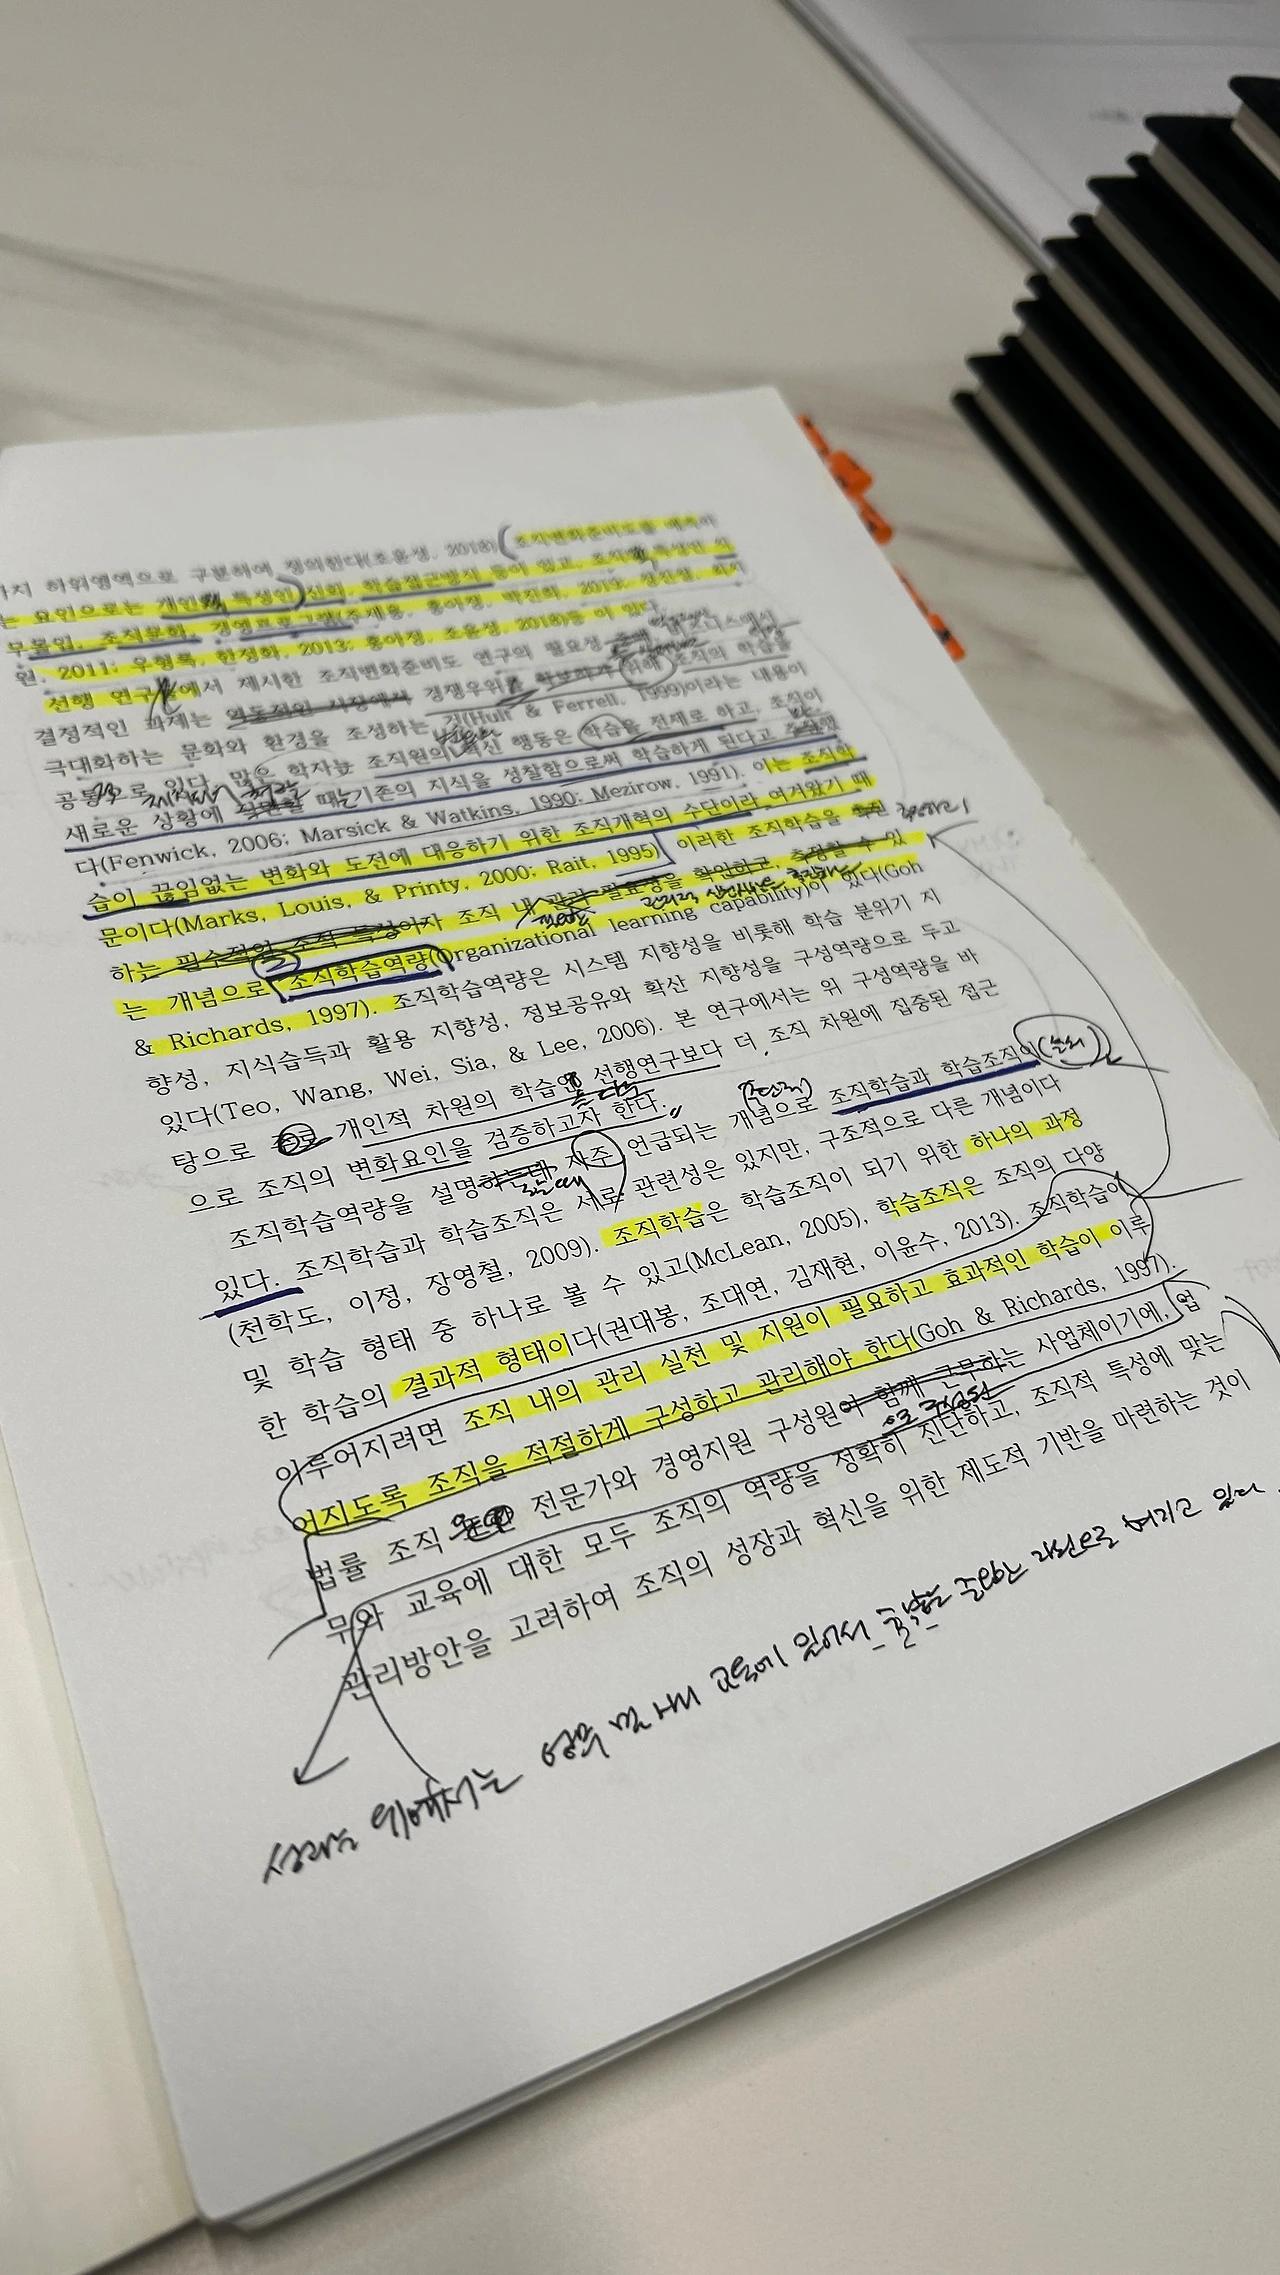 가지 하위영역으로 구분하여 정의한다(조윤성, 2018). (조직변화준비도를 예측하
는 요인으로는 개인 특성인) 신뢰, 학습접근방식 등이 있고, 조직 특성인 직
무몰입, 조직문화, 경영프로그램(주재홍, 홍아정, 박진희,
원, 2011; 우형록, 한정화, 2013; 홍아정, 조윤성, 2018)등 이 있다.
선행 연구들에서 제시한 조직변화준비도 연구의 필요성
결정적인 과제는 역동적인 시장에서 경쟁우위를 확보하기 위해 조직의 학습을
극대화하는 문화와 환경을 조성하는 것(Hult & Ferrell, 1999)이라는 내용이
공통으로 있다. 많은 학자는 조직원의 혁신 행동은 학습을 전제로 하고, 조직이
새로운 상황에 직면할 때는 기존의 지식을 성찰함으로써 학습하게 된다고
다(Fenwick, 2006; Marsick & Watkins, 1990; Mezirow, 1991). 이는 조직학
습이 끊임없는 변화와 도전에 대응하기 위한 조직개혁의 수단이라 여겨왔기 때
문이다(Marks, Louis, & Printy, 2000; Rait, 1995). 이러한 조직학습을 촉진
하는 필수적인 조직 특성이자 조직 내 관리 필요성을 확인하고, 측정할 수 있
는 개념으로 조직학습역량(Organizational learning capability)이 있다(Goh
& Richards, 1997). 조직학습역량은 시스템 지향성을 비롯해 학습 분위기 지
향성, 지식습득과 활용 지향성, 정보공유와 확산 지향성을 구성역량으로 두고
있다(Teo, Wang, Wei, Sia, & Lee, 2006). 본 연구에서는 위 구성역량을 바
탕으로 개인적 차원의 학습 선행연구보다 더, 조직 차원에 집중된 접근
으로 조직의 변화요인을 검증하고자 한다.
조직학습역량을 설명하는데 자주 언급되는 개념으로 조직학습과 학습조직이
있다. 조직학습과 학습조직은 서로 관련성은 있지만, 구조적으로 다른 개념이다
(천학도, 이정, 장영철, 2009). 조직학습은 학습조직이 되기 위한 하나의 과정
및 학습 형태 중 하나로 볼 수 있고(McLean, 2005), 학습조직은 조직의 다양
한 학습의 결과적 형태이다(권대봉, 조대연, 김재현, 이윤수, 2013). 조직학습이
이루어지려면 조직 내의 관리 실천 및 지원이 필요하고 효과적인 학습이 이루
어지도록 조직을 적절하게 구성하고 관리해야 한다(Goh & Richards, 1997).
법률 조직 전문가와 경영지원 구성원이 함께 근무하는 사업체이기에, 업
으로 구성된
무와 교육에 대한 모두 조직의 역량을 정확히 진단하고, 조직적 특성에 맞는
관리방안을 고려하여 조직의 성장과 혁신을 위한 제도적 기반을 마련하는 것이
위에서는 업무 및 교육에 있어서 중요한 자원으로 여기고 있다.